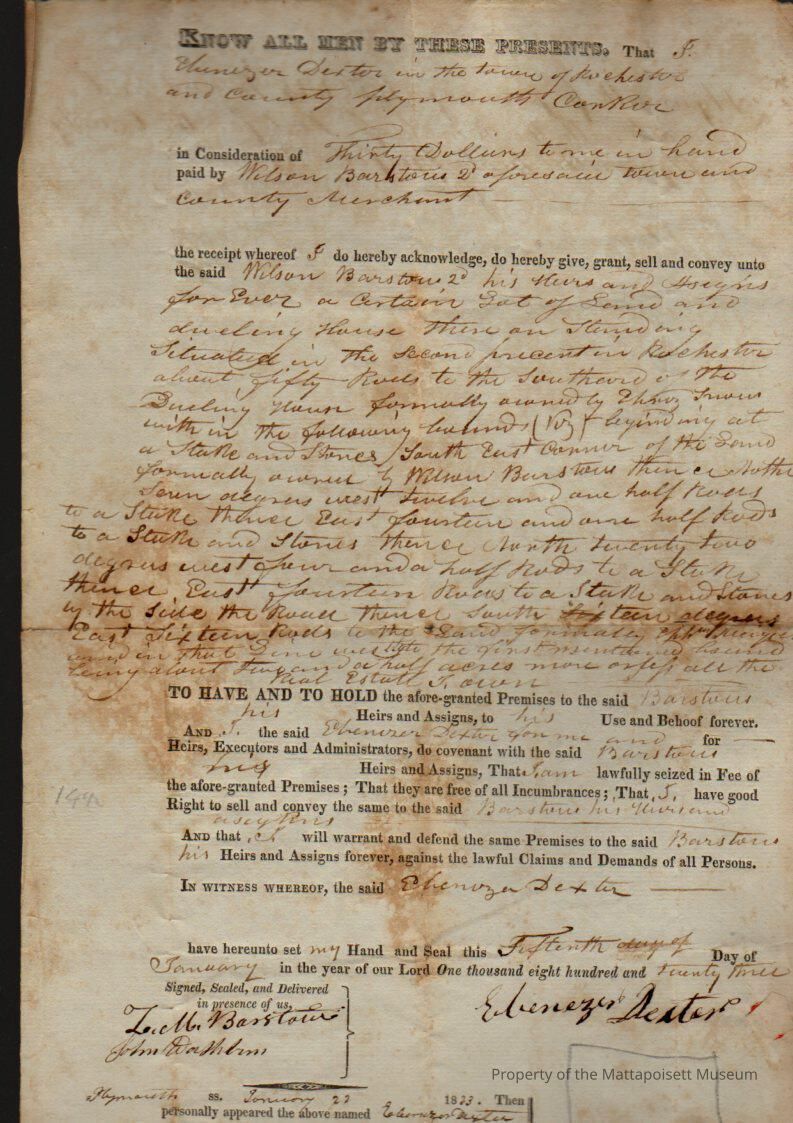 KNOW ALL MEN BY THESE PRESENTS. That I.
Ebenezer Dexter in the town of Rochester
and County Plymouth
in Consideration of Thirty Dollars to me in hand
paid by Wilson Barstow 2d aforesaid town and
County Merchant
the receipt whereof I do hereby acknowledge, do hereby give, grant, sell and convey unto
the said Wilson Barstow 2d his Heirs and Assigns
for Ever a Certain Lot of Land and
dweling House there on Standing
Situated in the Second precent in Rochester
about fifty Rods to the Southard of the
House formally owned by Snow
with in the following bounds (Viz) begining at
a Stake and Stones South East Corner of the Land
formally owned by Wilson Barstow thence North
Seven degrees west twelve and one half Rods
to a Stake thence East fourteen and one half Rods
to a Stake and Stones thence North twenty two
degrees west four and a half Rods to a Stake
thence East fourteen Rods to a Stake and Stones
by the Side the Road thence South Sixteen degrees
East Sixteen Rods to the Land formally
and in that Line west to the first mentioned bound
being about two and a half acres more or less all the
Real Estate I own
TO HAVE AND TO HOLD the afore-granted Premises to the said Barstow
his Heirs and Assigns, to his Use and Behoof forever.
AND I. the said Ebenezer Dexter for me and for
Heirs, Executors and Administrators, do covenant with the said Barstow
his Heirs and Assigns, That I am lawfully seized in Fee of
the afore-granted Premises; That they are free of all Incumbrances; That I. have good
Right to sell and convey the same to the said Barstow his Heirs and
assigns
AND that I will warrant and defend the same Premises to the said Barstow
his Heirs and Assigns forever, against the lawful Claims and Demands of all Persons.
IN WITNESS WHEREOF, the said Ebenezer Dexter
have hereunto set my Hand and Seal this Fifteenth day of Day of
January in the year of our Lord One thousand eight hundred and twenty three
Signed, Sealed, and Delivered
in presence of us,
Barstow
John Washburn
Ebenezer Dexter
Plymouth ss. January 22 1823. Then
personally appeared the above named Ebenezer Dexter
Property of the Mattapoisett Museum